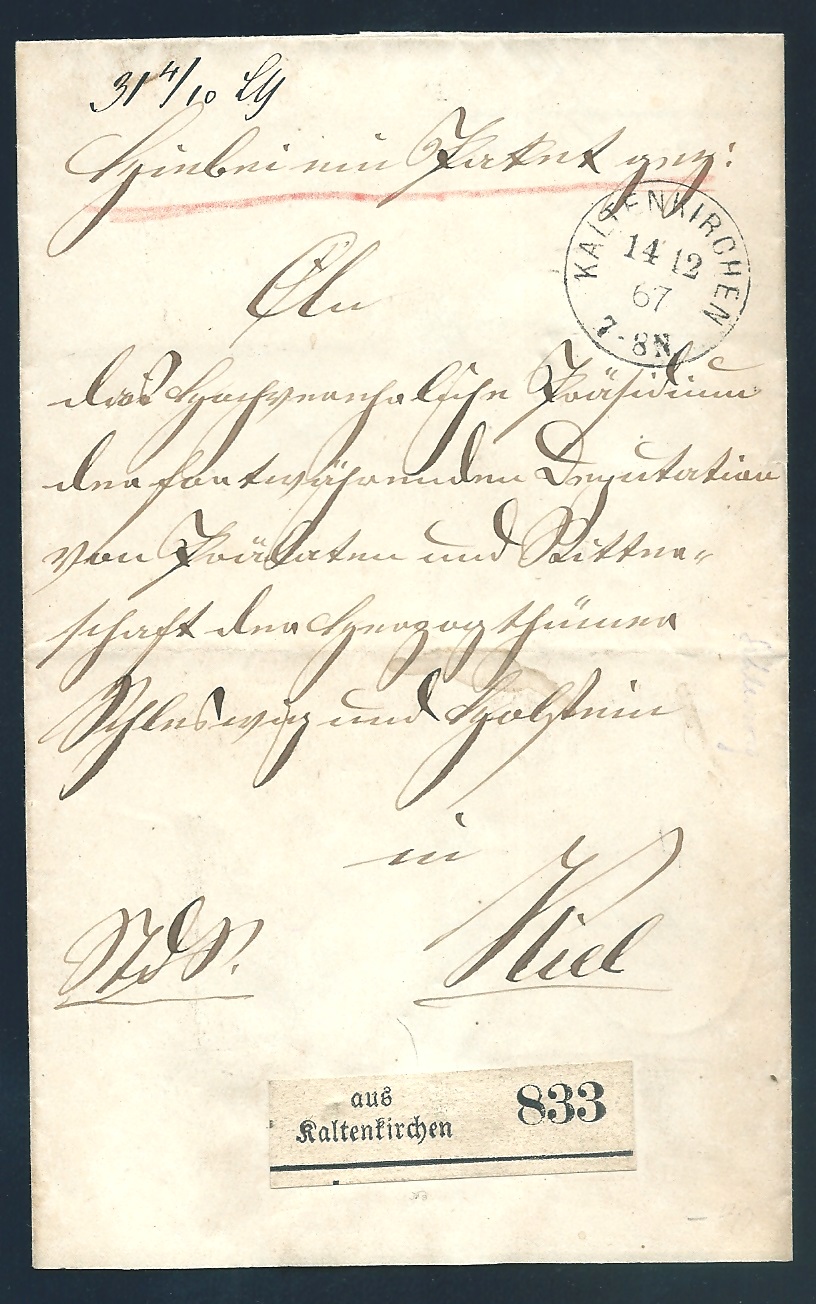 3 1 4/10 Lℊ
Hiebei ein Paket gez:
KALTENKIRCHEN
14 12
67
7-8N
An
das Hochverehrliche Präsidium
der fortwährenden Deputation
von Prälaten und Ritter-
schaft der Herzogthümer
Schleswig und Holstein
in
Kiel
aus
Kaltenkirchen 833